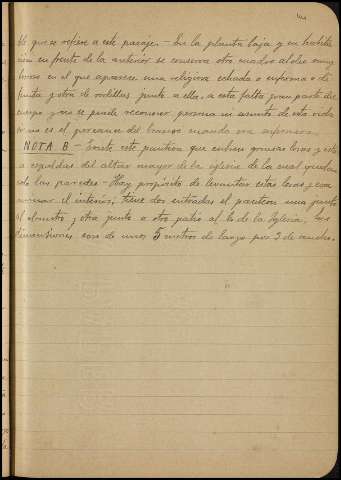 to que se refiere a este pasaje. — En la planta baja y en habita
ción en frente de la anterior se conserva otro cuadro al óleo muy
en el que aparece una religiosa echada o enferma o di
funta y otra de rodillas junto a ella, a esta falta gran parte del
cuerpo y no se puede reconocer
o no es el
NOTA B — Existe este panteon que cubren gruesas losas y está
a espaldas del altar mayor de la iglesia de la cual quedan
solo las paredes — Hay propósito de levantar estas losas y exa
minar el interior; tiene dos entradas el panteon una junto
al claustro y otra junto a otro patio al de la Iglesia, sus
dimensiones son de unos 5 metros de largo por 3 de ancho.